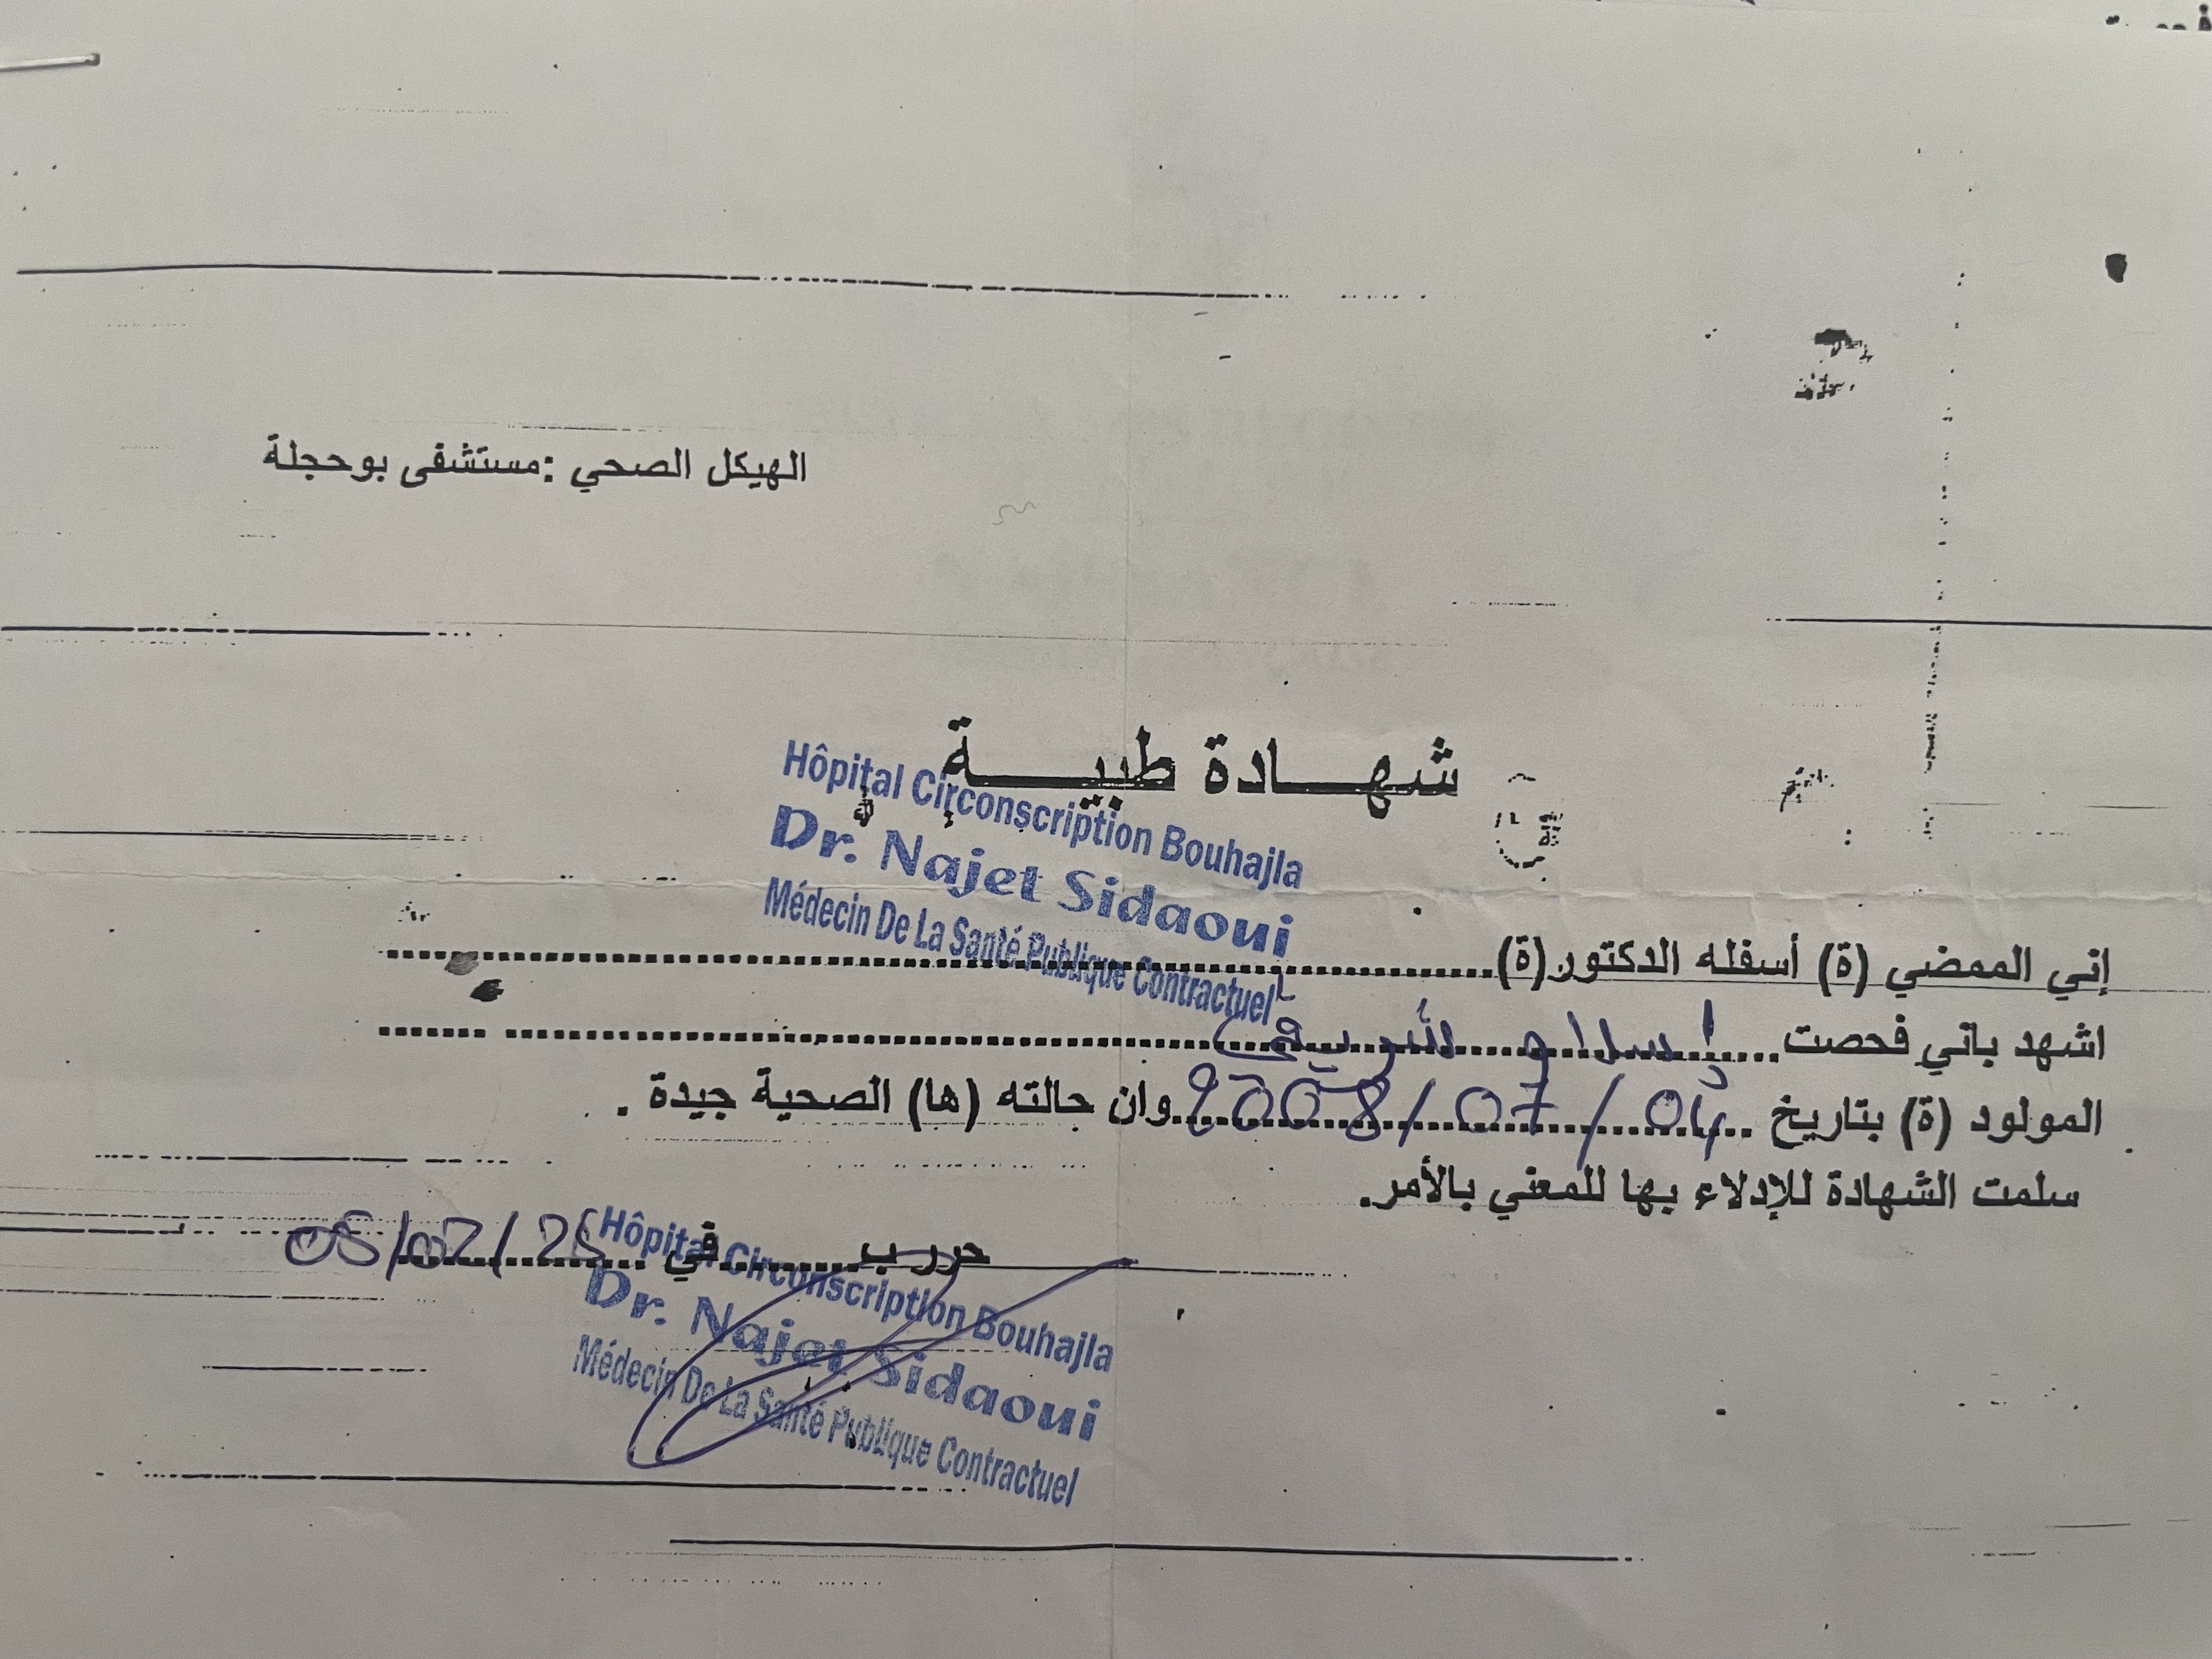 الهيكل الصحي :مستشفى بوحجلة
شهـــادة طبيـــة
Hôpital Circonscription Bouhajla
Dr. Najet Sidaoui
Médecin De La Santé Publique Contractuel
إني الممضي (ة) أسفله الدكتور(ة)
اشهد باني فحصت إسلام
المولود (ة) بتاريخ 04/07/2008 وان حالته (ها) الصحية جيدة .
سلمت الشهادة للإدلاء بها للمعني بالأمر.
حرر ب في 05/02/25
Hôpital Circonscription Bouhajla
Dr. Najet Sidaoui
Médecin De La Santé Publique Contractuel